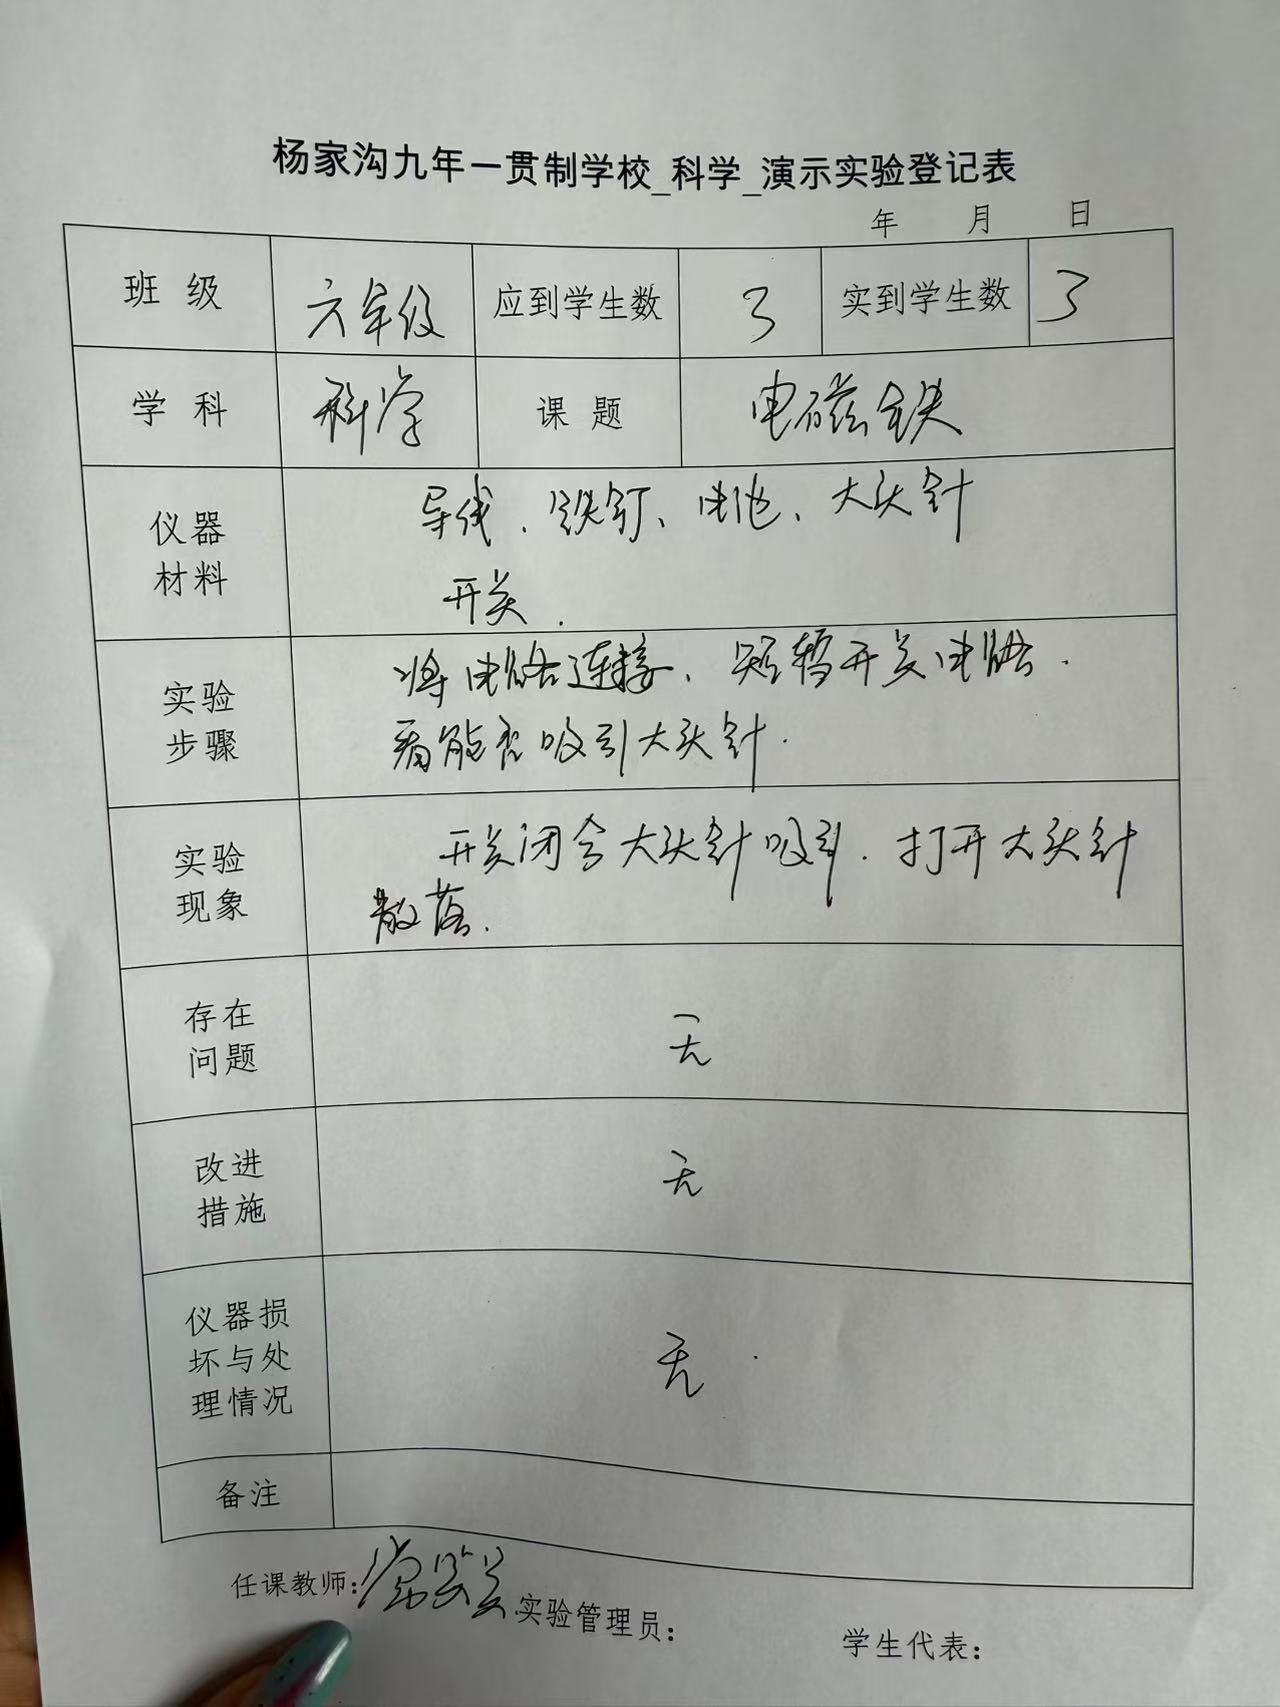 杨家沟九年一贯制学校_科学_演示实验登记表
年 月 日
班 级 六年级 应到学生数 3 实到学生数 3
学 科 科学 课 题 电磁铁
仪器
材料
导线、铁钉、电池、大头针
开关.
实验
步骤
将电路连接、短暂开关电路.
看能否吸引大头针.
实验
现象
开关闭合大头针吸引.打开大头针
散落.
存在
问题
无
改进
措施
无
仪器损
坏与处
理情况
无
备注
任课教师: 实验管理员: 学生代表: